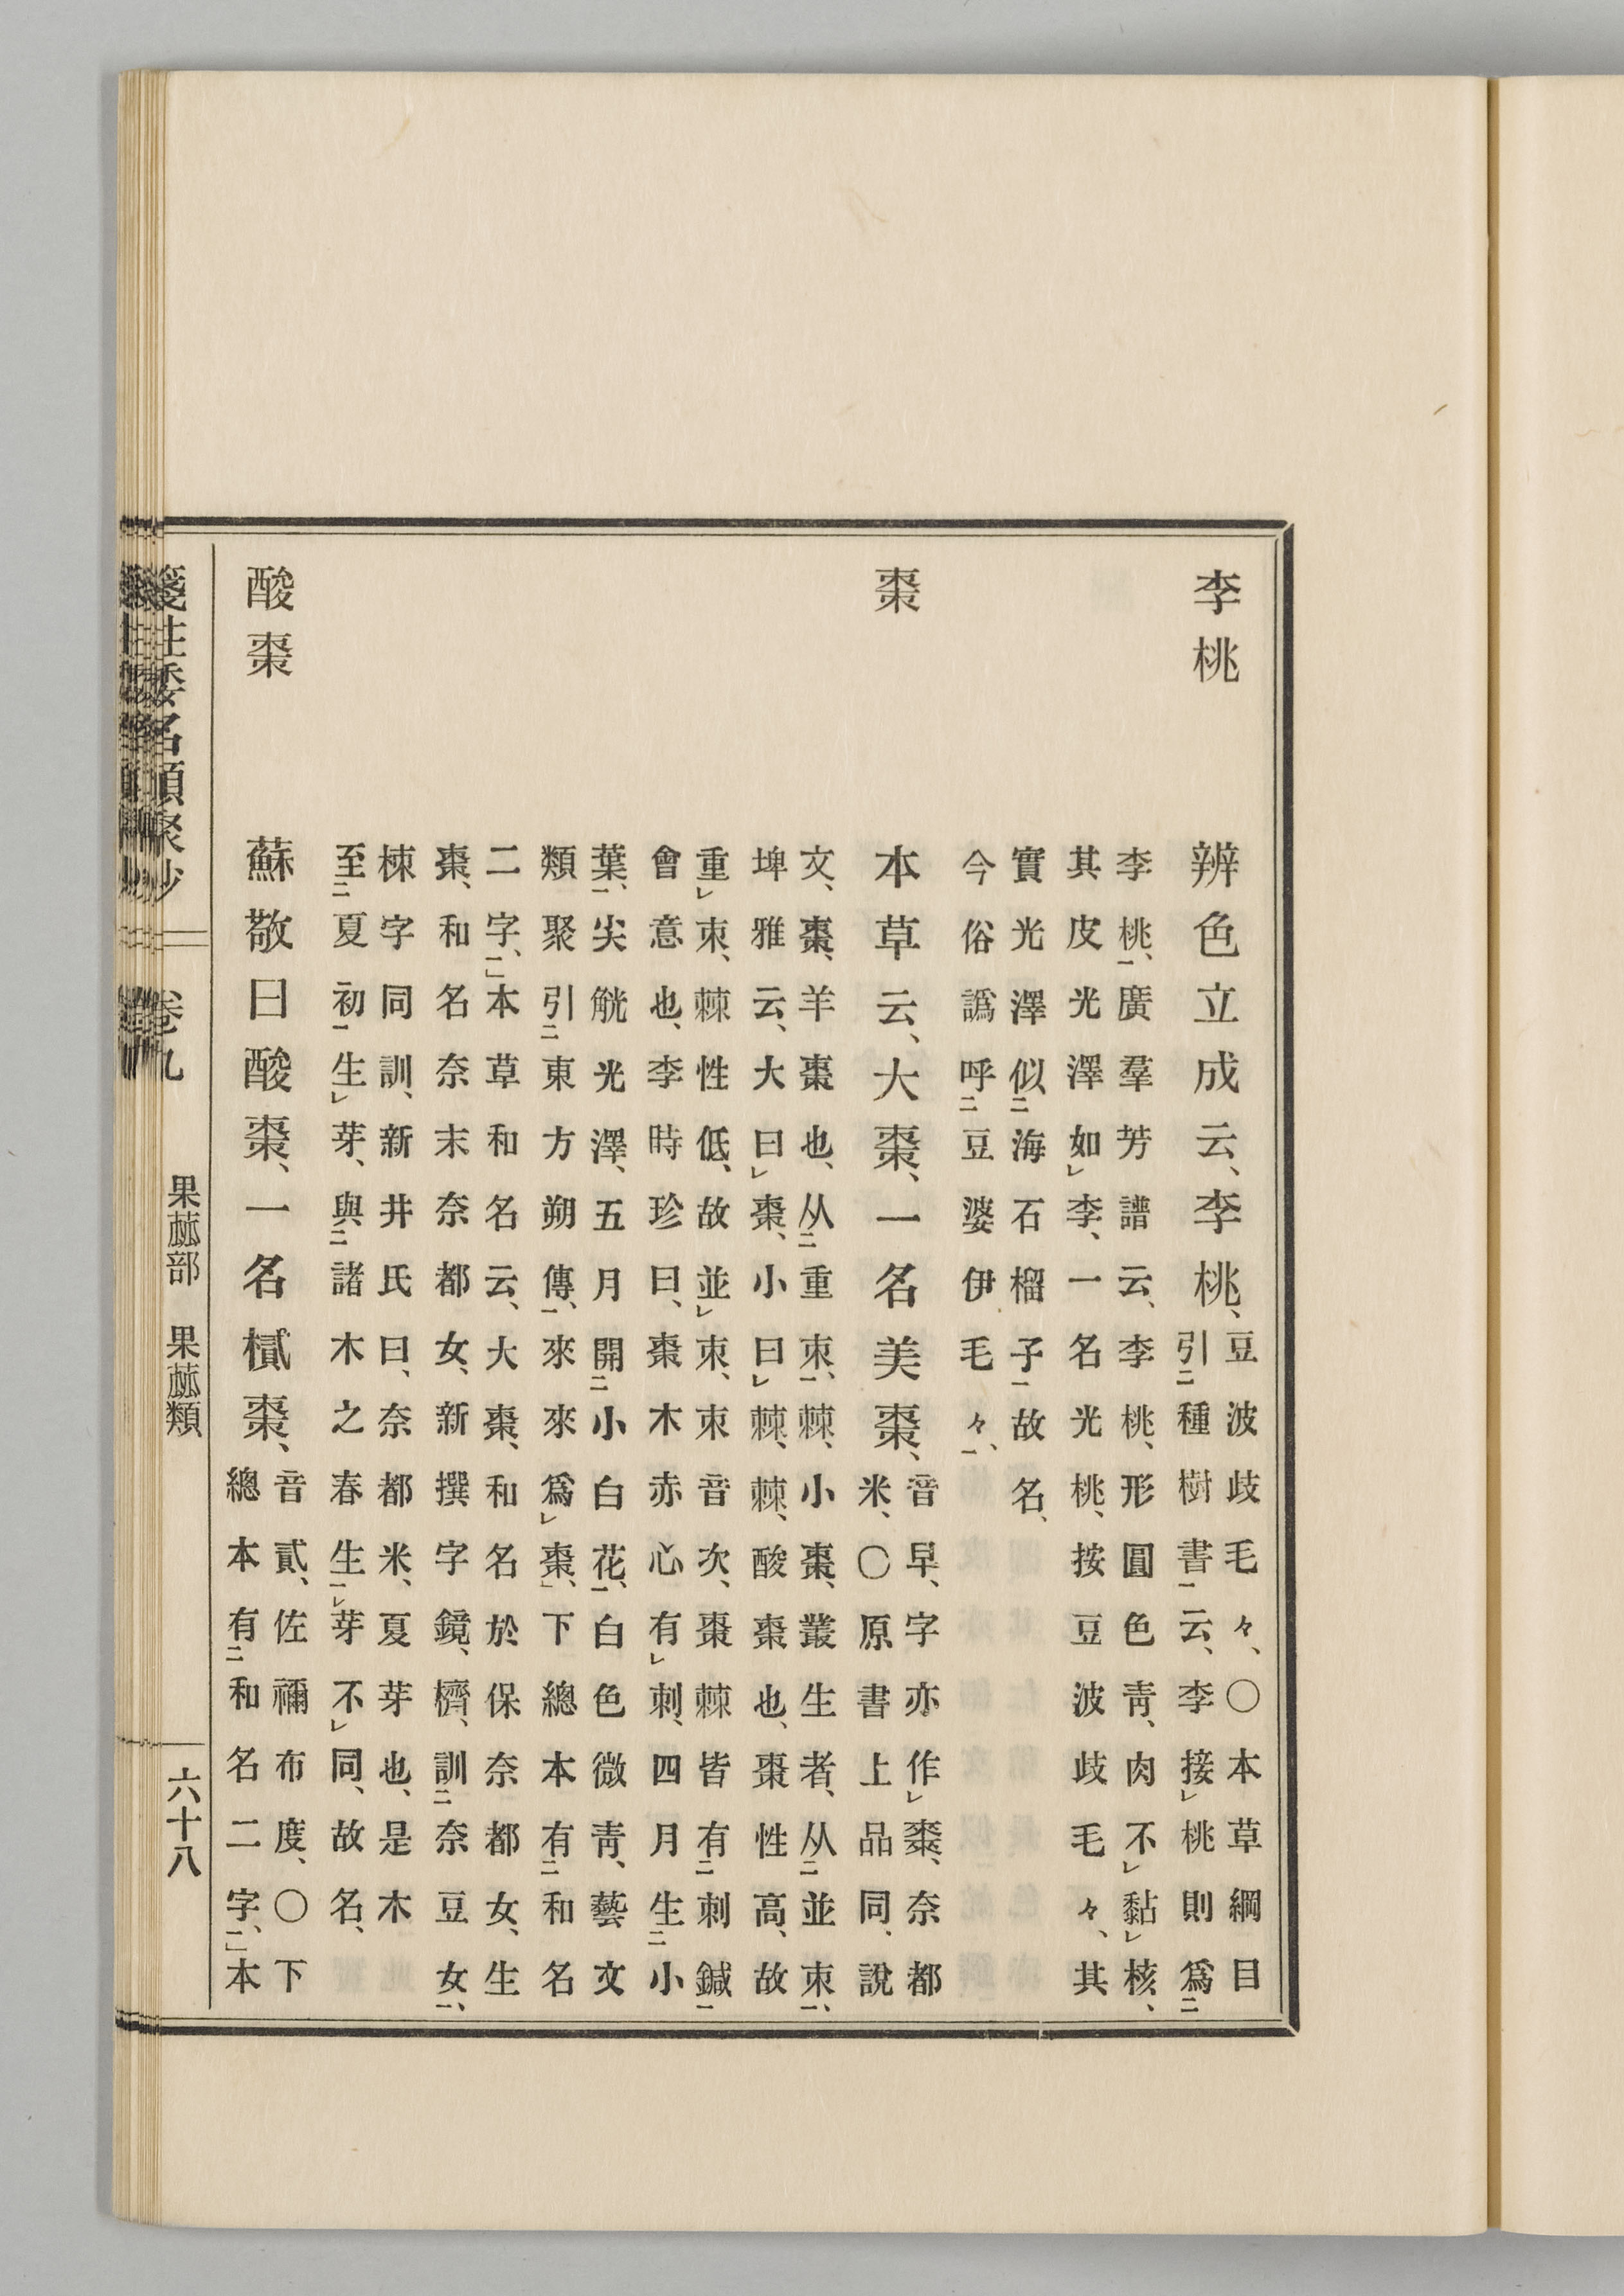 李桃
辨色立成云、李桃、
豆波歧毛々、〇本草綱目
引㆓種樹書㆒云、李接㆑桃則爲㆓
李桃、㆒廣羣芳譜云、李桃、形圓色靑、肉不㆑黏㆑核、
其皮光澤如㆑李、一名光桃、按豆波歧毛々、其
實光澤似㆓海石榴子㆒故名、
今俗譌呼㆓豆婆伊毛々、㆒
棗
本草云、大棗、一名美棗、
音早、字亦作㆑棗、奈都
米、〇原書上品同、說
文、棗、羊棗也、从㆓重朿㆒、棘、小棗、叢生者、从㆓並朿㆒、
埤雅云、大曰㆑棗、小曰㆑棘、棘、酸棗也、棗性高、故
重㆑朿、棘性低、故並㆑朿、朿音次、棗棘皆有㆓刺鍼㆒
會意也、李時珍曰、棗木赤心有㆑刺、四月生㆓小
葉、㆒尖觥光澤、五月開㆓小白花、㆒白色微靑、藝文
類聚引㆓東方朔傳、㆒來來爲㆑棗、下總本有㆓和名
二字、㆒本草和名云、大棗、和名於保奈都女、生
棗、和名奈末奈都女、新撰字鏡、櫅、訓㆓奈豆女、㆒
棟字同訓、新井氏曰、奈都米、夏芽也、是木
至㆓夏初㆒生㆑芽、與㆓諸木之春生㆒㆑芽不㆑同、故名、
酸棗
蘇敬曰酸棗、一名樲棗、
音貳、佐禰布度、〇下
總本有㆓和名二字、㆒本
箋注倭名類聚抄 卷九 果蓏部 果蓏類 六十八